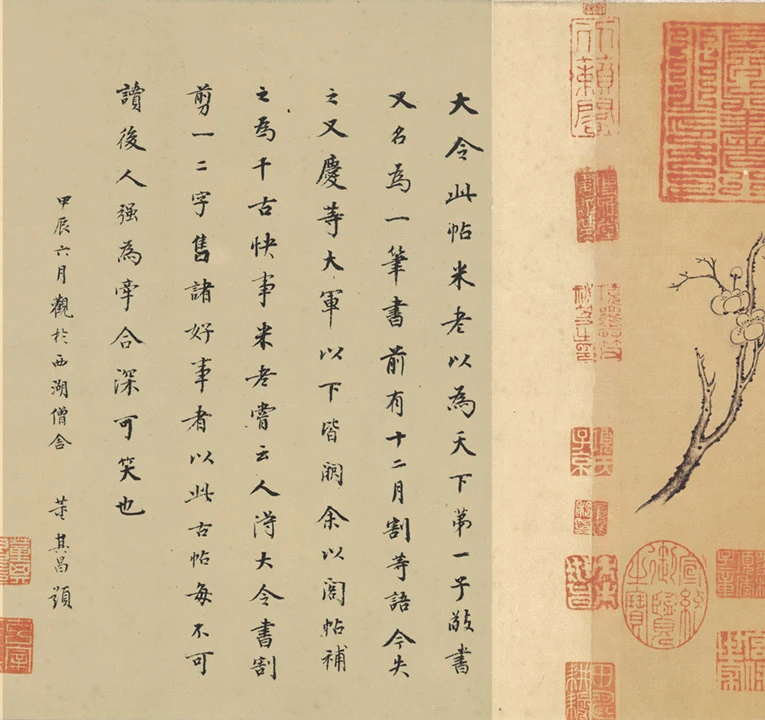 天籟閣
宣統御覽之寶
大令此帖米老以為天下第一子敬書
又名為一筆書前有十二月割等語今失
之又慶等大軍以下皆闕余以閣帖補
之為千古快事米老嘗云人得大令書割
剪一二字售諸好事者以此古帖每不可
讀後人强為牽合深可笑也
甲辰六月觀於西湖僧舍 董其昌題